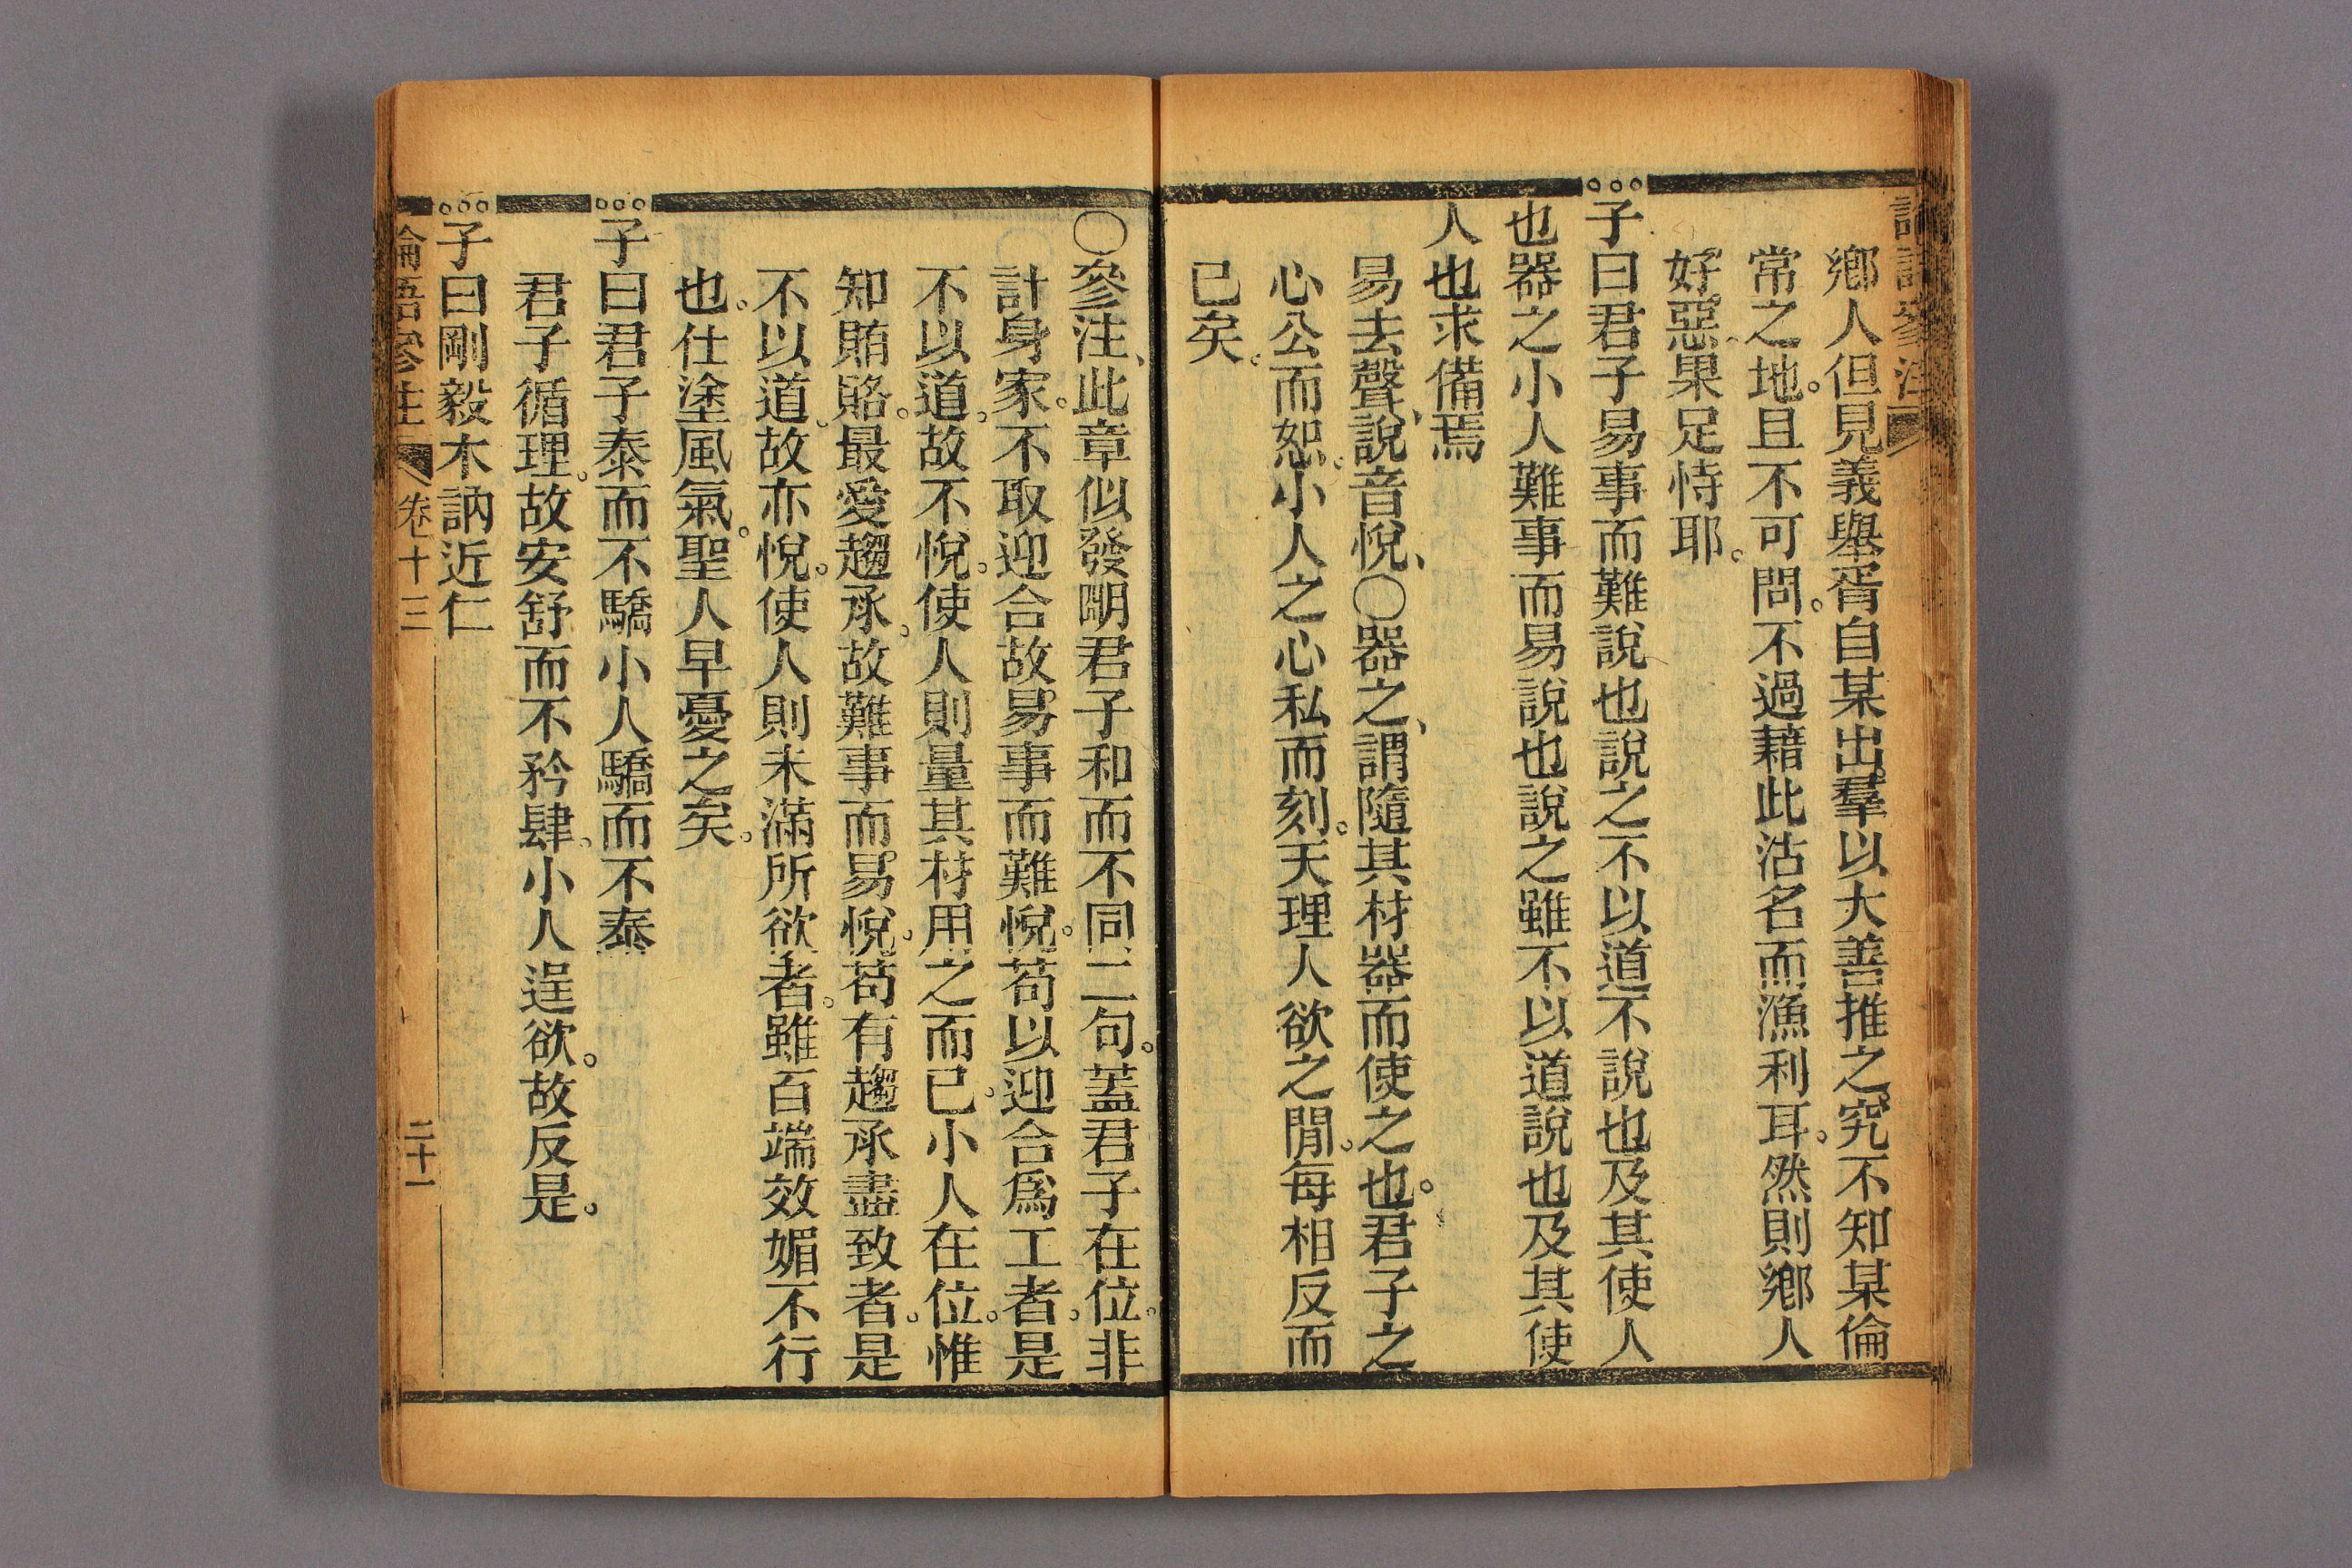 鄉人但見義舉胥自某出。羣以大善推之。究不知某倫
常之地。且不可問。不過藉此沽名而漁利耳。然則鄉人
好惡。果足恃耶。
子曰君子易事而難說也說之不以道不說也及其使人
也器之小人難事而易說也說之雖不以道說也及其使
人也求備焉
易去聲、說音悅、〇器之、謂隨其材器而使之也。君子之
心公而恕。小人之心私而刻。天理人欲之閒。每相反而
已矣。
〇參注、此章似發明君子和而不同二句。蓋君子在位。非
計身家。不取迎合故易事而難悅。苟以迎合爲工者。是
不以道。故不悅。使人則量其材用之而已。小人在位。惟
知賄賂。最愛趨承。故難事而易悅。苟有趨承盡致者。是
不以道。故亦悅。使人則未滿所欲者。雖百端效媚不行
也。仕塗風氣。聖人早憂之矣。
子曰君子泰而不驕小人驕而不泰
君子循理。故安舒而不矜肆。小人逞欲。故反是。
子曰剛毅木訥近仁
論語參注 卷十三 二十一